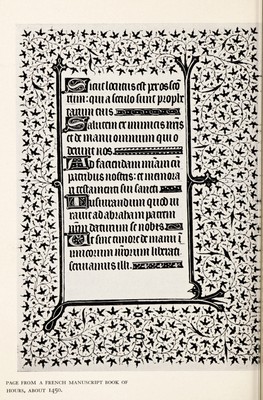 Sicut locutus est per os sco
rum: qui a seculo sunt prophe
tarum eius
Salutem ex inimicis nris
et de manu omnium quio
derunt nos
Ad faciendam miam cū
patribus nostris: et memora
ri testamenti sui sancti
Iusiurandum quod iu
rauit ad abraham patrem
nrm daturum se nobis
Ut sine timore de manu i
nimicorum nrorum liberati
seruiamus illi.
PAGE FROM A FRENCH MANUSCRIPT BOOK OF
HOURS, ABOUT 1450.